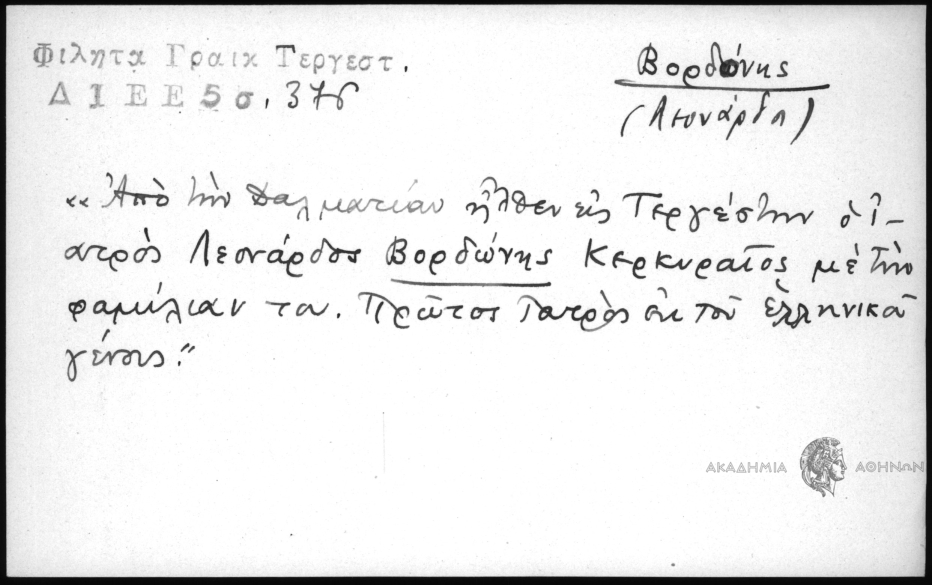 Φιλητα Γραικ Τεργεστ.
ΔΙΕΕ5σ. 376
Βορδώνης
(Λεονάρδ )
«Ἀπὸ τὴν Δαλματίαν ἦλθεν εἰς Τεργέστην ὁ ἰ-
ατρὸς Λεονάρδος Βορδώνης Κερκυραῖος μὲ τὴν
φαμίλιαν του. Πρῶτος ἰατρὸς ἐκ τοῦ ἑλληνικοῦ
γένους."
ΑΚΑΔΗΜΙΑ ΑΘΗΝΩΝ